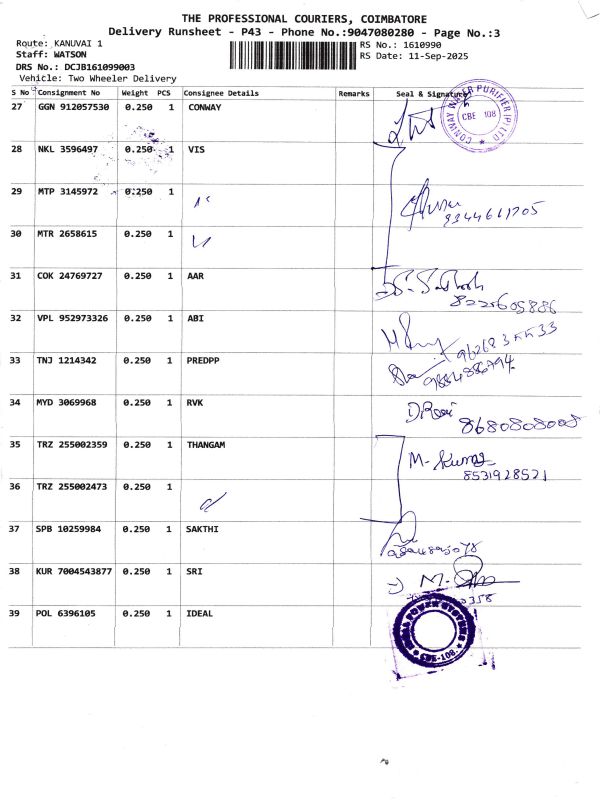 THE PROFESSIONAL COURIERS, COIMBATORE
Delivery Runsheet - P43 - Phone No.:9047080280 - Page No.:3
Route: KANUVAI 1
Staff: WATSON
DRS No.: DCJB161099003
Vehicle: Two Wheeler Delivery
RS No.: 1610990
RS Date: 11-Sep-2025
S No Consignment No Weight PCS Consignee Details Remarks Seal & Signature
27 GGN 912057530 0.250 1 CONWAY
CONWAY WATER PURIFIER (P) LTD
CBE 108
28 NKL 3596497 0.250 1 VIS
29 MTP 3145972 0.250 1
9344661705
30 MTR 2658615 0.250 1
31 COK 24769727 0.250 1 AAR
8225605886
32 VPL 952973326 0.250 1 ABI
33 TNJ 1214342 0.250 1 PREDPP
9884886794
34 MYD 3069968 0.250 1 RVK
8680808008
35 TRZ 255002359 0.250 1 THANGAM
M. Kumar
8531928521
36 TRZ 255002473 0.250 1
37 SPB 10259984 0.250 1 SAKTHI
38 KUR 7004543877 0.250 1 SRI
M.
39 POL 6396105 0.250 1 IDEAL
IDEAL POWER SYSTEMS
CBE-108